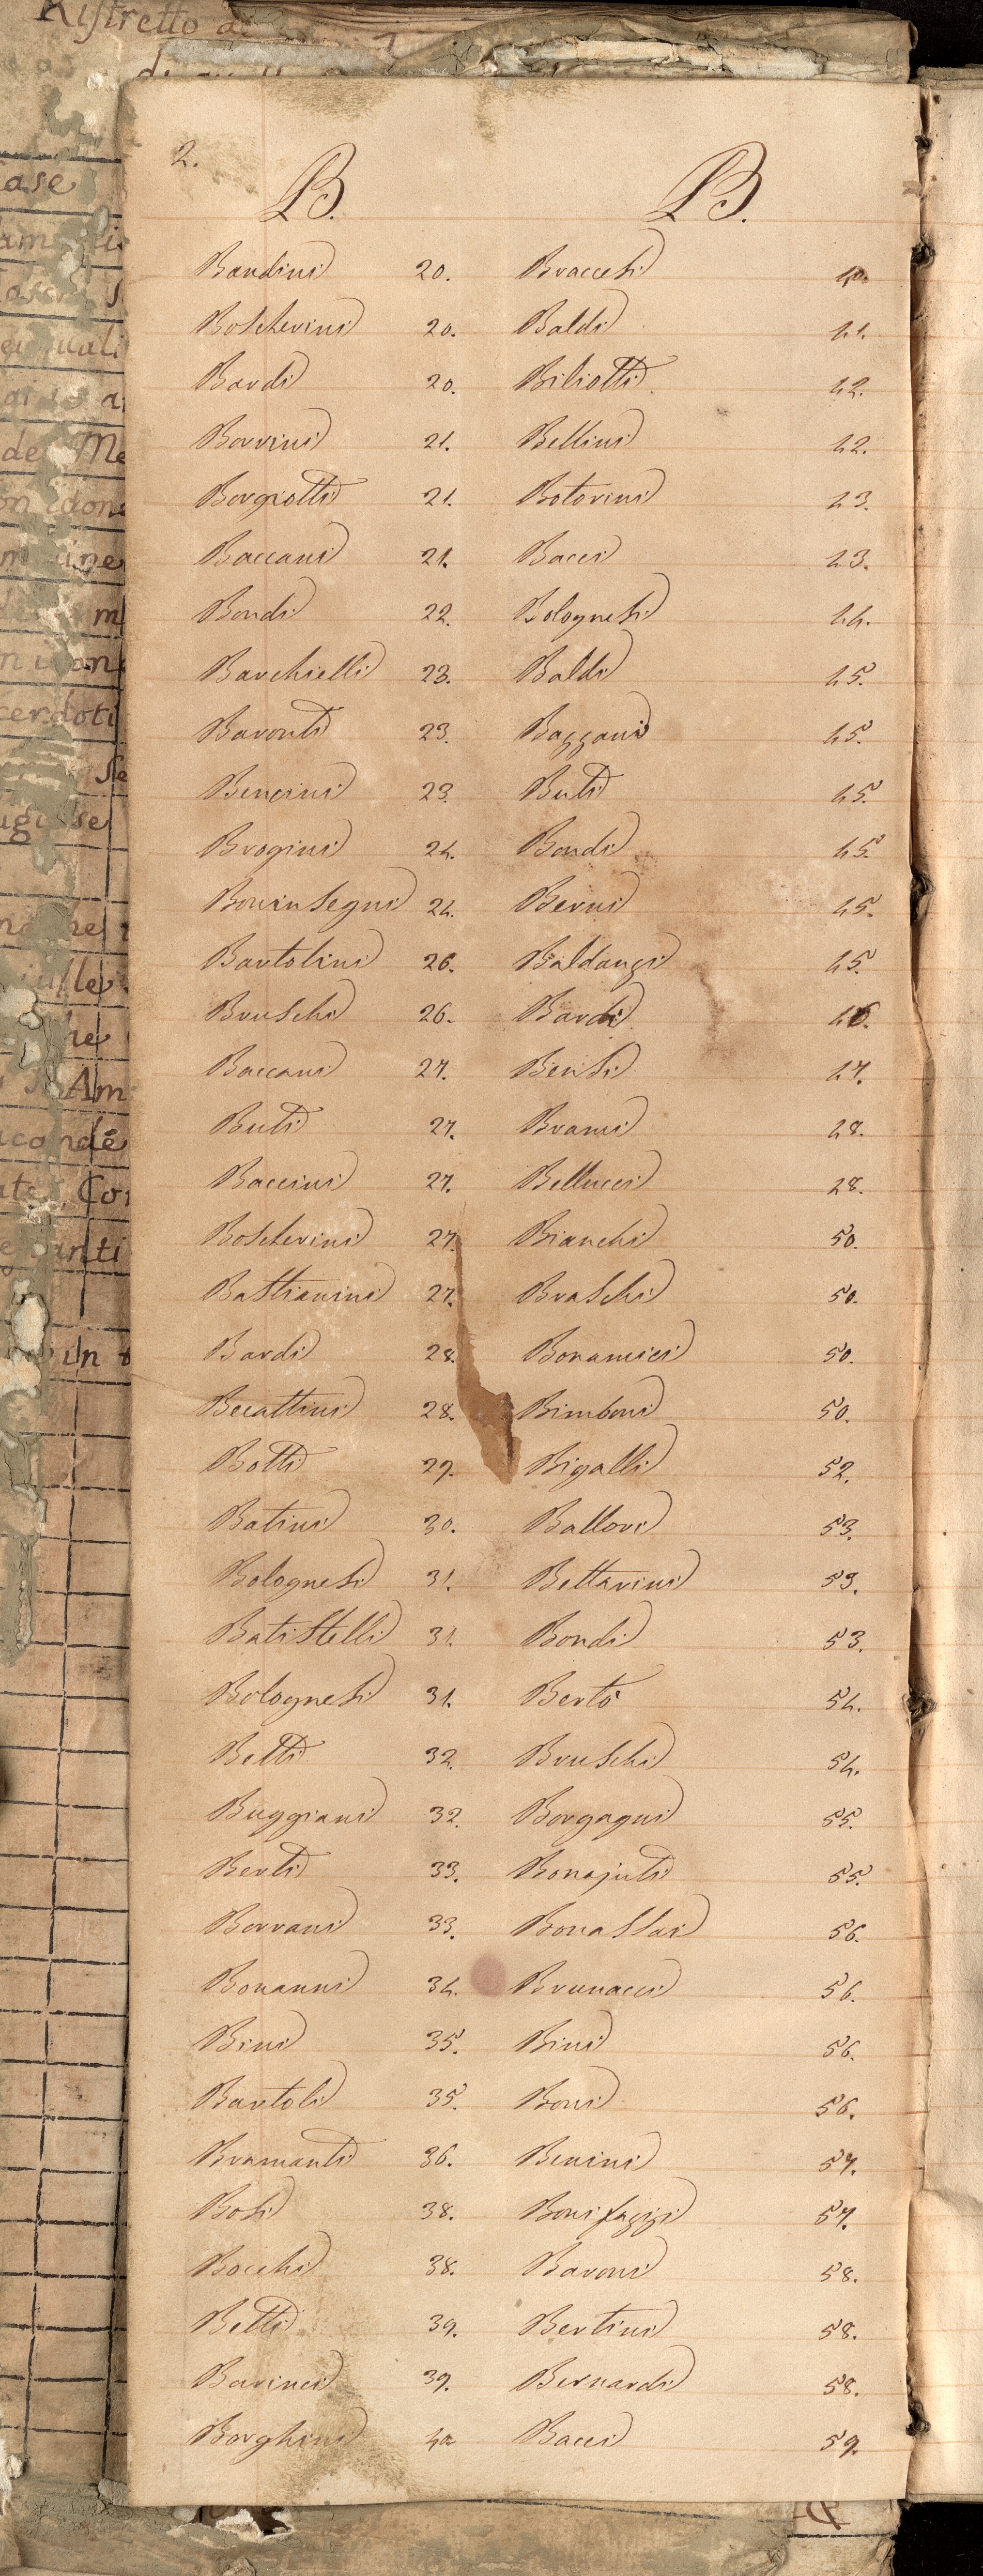 Ristretto d
2.
B.
Bandini 20.
Boscherini 20.
Bardi 20.
Borrini 21.
Borgiotti 21.
Baccani 21.
Bondi 22.
Barchielli 23.
Baronti 23.
Bencini 23.
Brogini 24.
Boninsegni 24.
Bartolini 26.
Bruschi 26.
Baccani 27.
Buti 27.
Baccini 27.
Boscherini 27.
Bastianini 27.
Bardi 28.
Becattini 28.
Botti 29.
Batini 30.
Bolognesi 31.
Batistelli 31.
Bolognesi 31.
Betti 32.
Buggiani 32.
Berti 33.
Borrani 33.
Bonanni 34.
Bini 35.
Bartoli 35.
Bramanti 36.
Bosi 38.
Bocchi 38.
Betti 39.
Barinci 39.
Borghini 40
B.
Braccesi 40.
Baldi 41.
Biliotti 42.
Bellini 42.
Botorini 43.
Bacci 43.
Bolognesi 44.
Baldi 45.
Bazzani 45.
Buti 45.
Bondi 45.
Berni 45.
Baldanzi 45.
Bardi 46.
Bensi 47.
Brami 48.
Bellucci 48.
Bianchi 50.
Braschi 50.
Bonamici 50.
Bimboni 50.
Bigalli 52.
Ballori 53.
Bettarini 53.
Bondi 53.
Berto 54.
Bruschi 54.
Borgagni 55.
Bonajuti 55.
Bonassai 56.
Brunacci 56.
Bini 56.
Boni 56.
Benini 57.
Bonifazizi 57.
Baroni 58.
Bertini 58.
Bernardi 58.
Bacci 59.